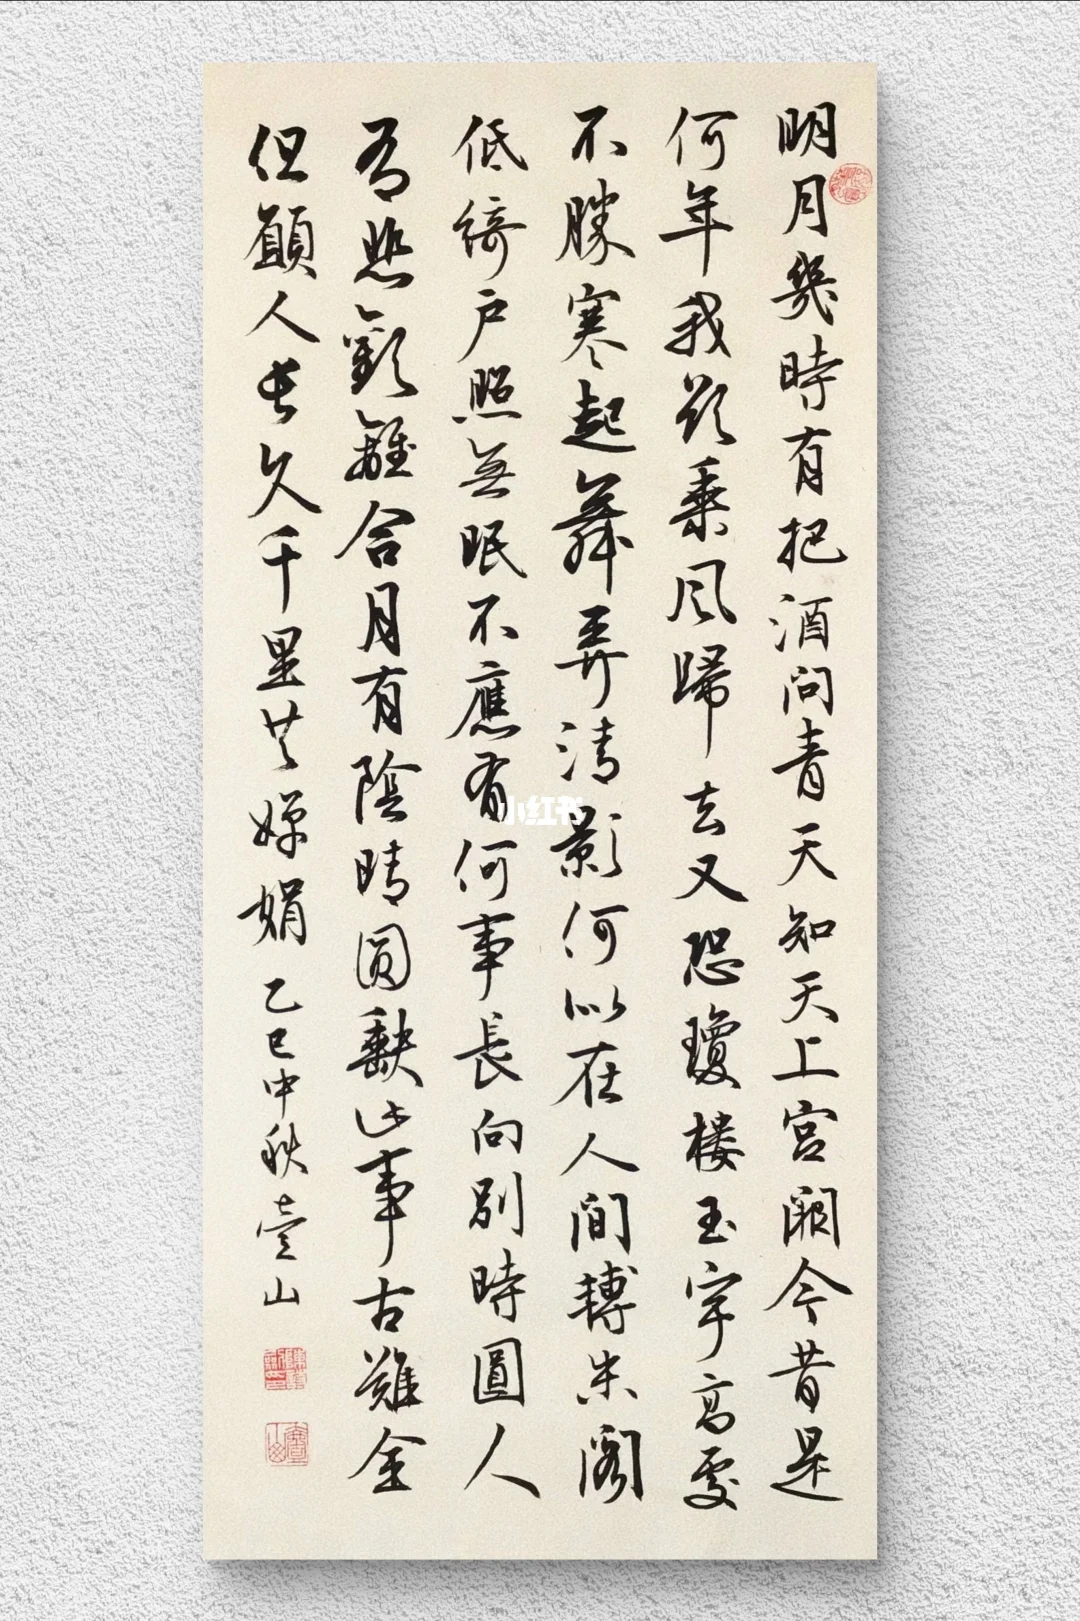 明月幾時有把酒問青天知天上宮闕今昔是
何年我欲乘風歸去又恐瓊樓玉宇高處
不勝寒起舞弄清影何以在人間轉朱閣
低綺戶照無眠不應有何事長向別時圓人
有悲歡離合月有陰晴圓缺此事古難全
但願人長久千里共嬋娟乙巳中秋壹山
小红书